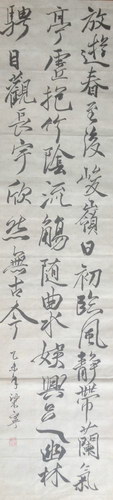 放遊春至後峻嶺日初臨風靜帶蘭氣
亭虛抱竹陰流觴隨曲水娛興幽林
騁目觀長宇欣然無古今
乙未年